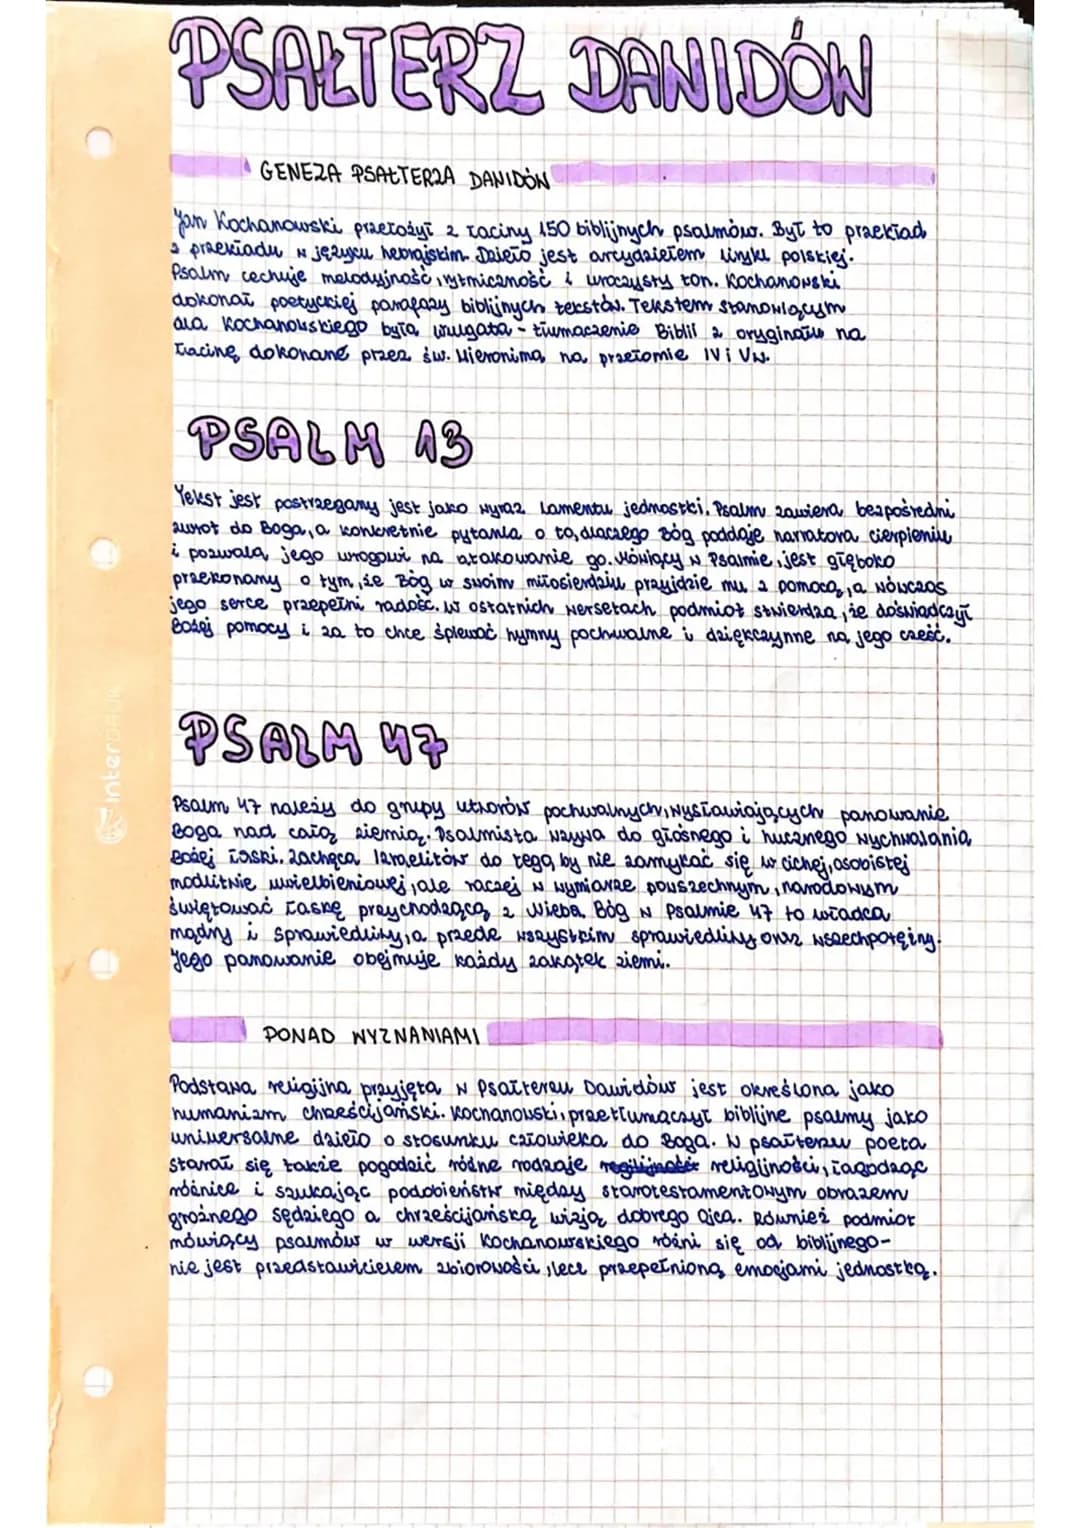 PSAŁTERZ DAWIDÓW
GENEZA PSAŁTERZA DAWIDÓW
Jan Kochanowski przełożył z łaciny 150 biblijnych psalmów. Był to przekład
z przekładu w języku hebrajskim. Dzieło jest arcydziełem liryki polskiej.
Psalm cechuje melodyjność, rytmiczność i uroczysty ton. Kochanowski
dokonał poetyckiej parafrazy biblijnych tekstów. Tekstem stanowiącym
dla Kochanowskiego była wulgata - tłumaczenie Biblii z oryginału na
łacinę dokonane przez św. Hieronima na przełomie IV i V w.
PSALM 13
Tekst jest postrzegany jest jako wyraz lamentu jednostki. Psalm zawiera bezpośredni
zwrot do Boga, a konkretnie pytania o to, dlaczego Bóg poddaje narratora cierpieniu
i pozwala jego wrogowi na atakowanie go. Mówiący w Psalmie, jest głęboko
przekonany o tym, że Bóg w swoim miłosierdziu przyjdzie mu z pomocą, a wówczas
jego serce przepełni radość. W ostatnich wersetach podmiot stwierdza, że doświadczył
Bożej pomocy i za to chce śpiewać hymny pochwalne i dziękczynne na jego cześć.
PSALM 47
Psalm 47 należy do grupy utworów pochwalnych, wysławiających panowanie
Boga nad całą ziemią. Psalmista wzywa do głośnego i hucznego wychwalania
Bożej łaski. Zachęca Izraelitów do tego, by nie zamykać się w cichej, osobistej
modlitwie uwielbieniowej, ale raczej w wymiarze powszechnym, narodowym
świętować łaskę przychodzącą z Nieba. Bóg w Psalmie 47 to władca
mądry i sprawiedliwy, a przede wszystkim sprawiedliwy oraz wszechpotężny.
Jego panowanie obejmuje każdy zakątek ziemi.
PONAD WYZNANIAMI
Podstawa religijna przyjęta w Psałterzu Dawidów jest określona jako
humanizm chrześcijański. Kochanowski, przetłumaczył biblijne psalmy jako
uniwersalne dzieło o stosunku człowieka do Boga. W psałterzu poeta
starał się także pogodzić różne rodzaje religijności, łagodząc
różnice i szukając podobieństw między starotestamentowym obrazem
groźnego sędziego a chrześcijańską wizją dobrego Ojca. Również podmiot
mówiący psalmów w wersji Kochanowskiego różni się od biblijnego-
nie jest przedstawicielem zbiorowości, lecz przepełnioną emocjami jednostką.